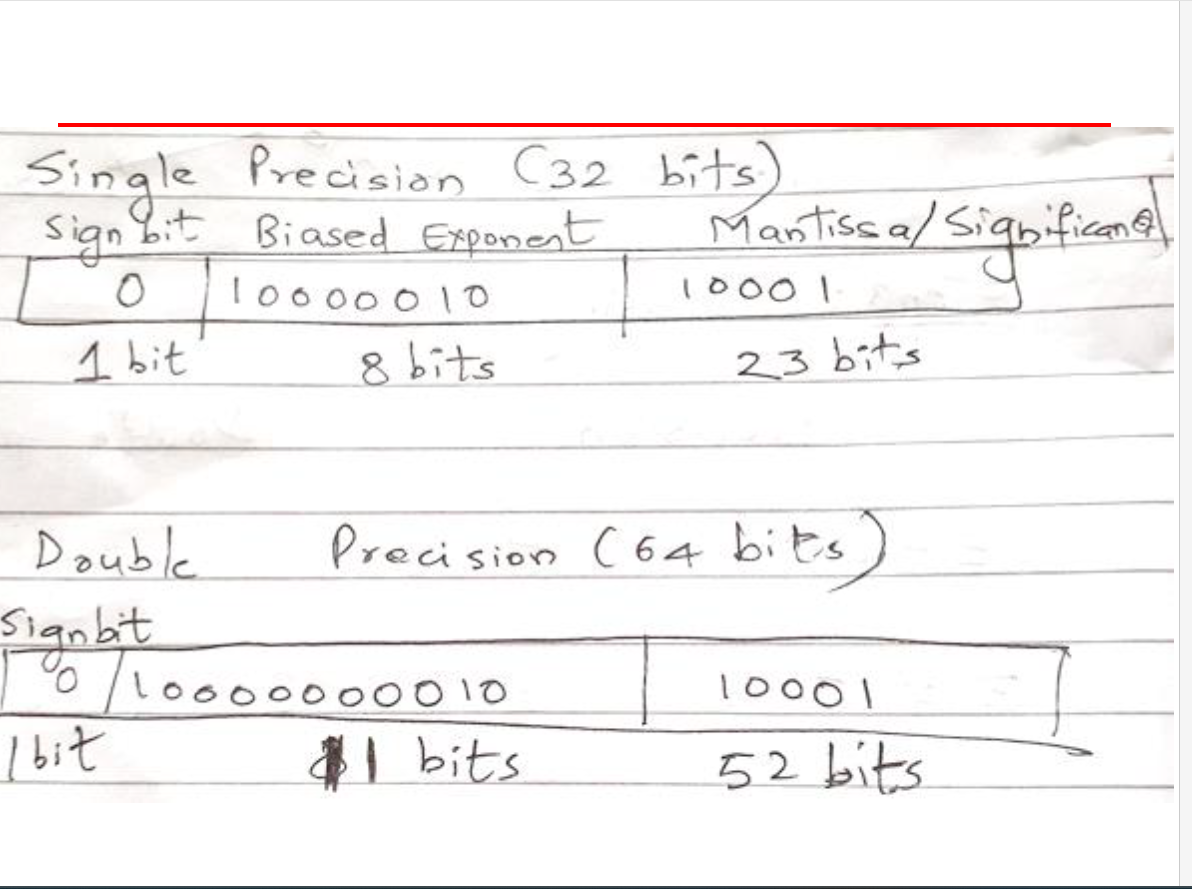 Single Precision (32 bits)
Sign bit Biased Exponent Mantissa/Significand
0 10000010 10001
1 bit 8 bits 23 bits
Double Precision (64 bits)
Signbit
0 10000000010 10001
1 bit 11 bits 52 bits